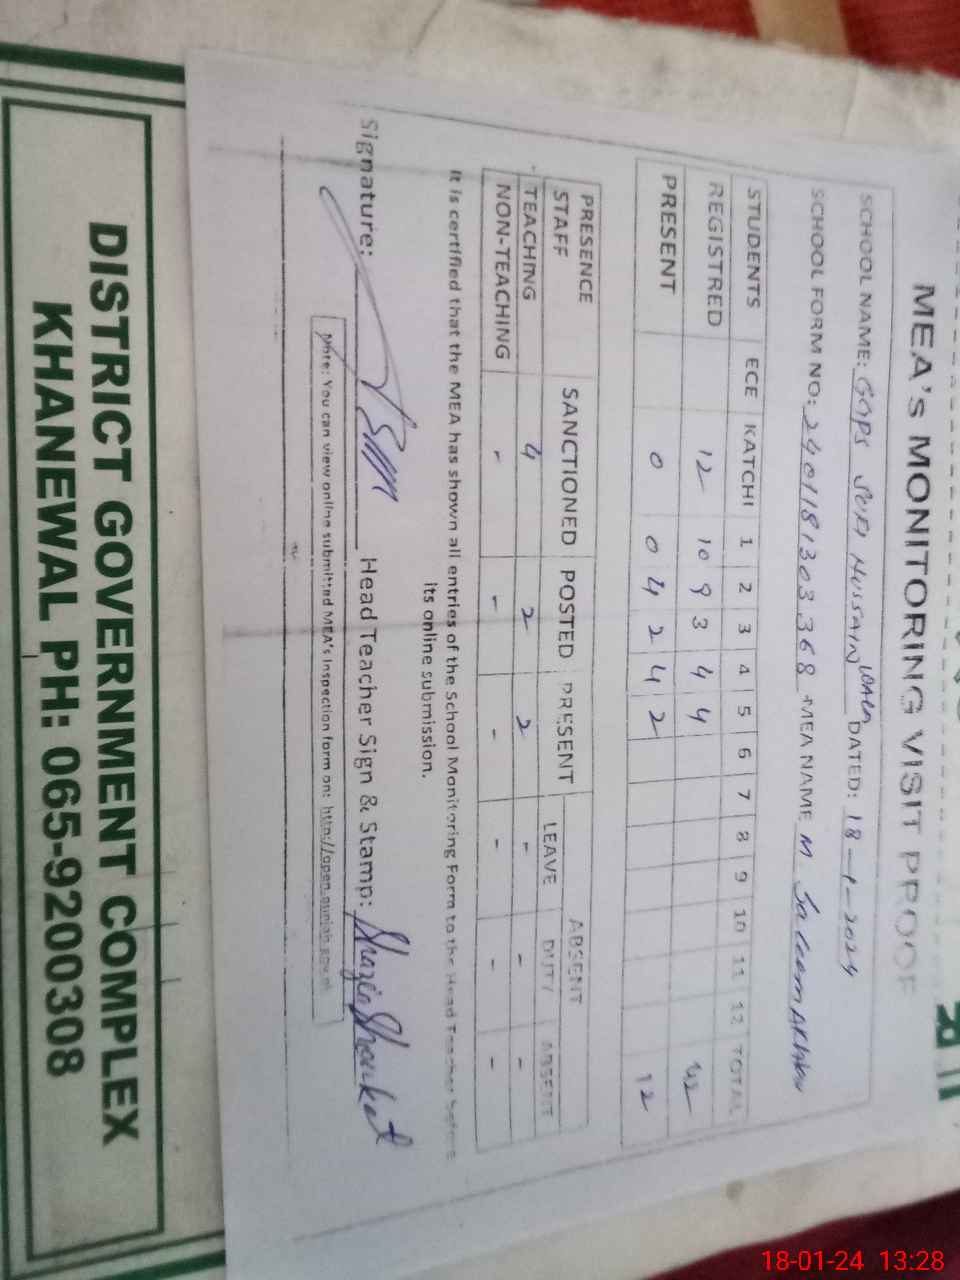 MEA's MONITORING VISIT PROOF
SCHOOL NAME: GGPS SUFI HUSSAIN WALA DATED: 18-1-2024
SCHOOL FORM NO: 2401181303368 MEA NAME M Saleem AKhtar
STUDENTS ECE KATCHI 1 2 3 4 5 6 7 8 9 10 11 12 TOTAL
REGISTRED 12 10 9 3 4 4 42
PRESENT 0 0 4 2 4 2 12
PRESENCE STAFF SANCTIONED POSTED PRESENT ABSENT
LEAVE DUTY ABSENT
TEACHING 4 2 2 - - -
NON-TEACHING - - - - - -
It is certified that the MEA has shown all entries of the School Monitoring Form to the Head Teacher before
its online submission.
Signature: Head Teacher Sign & Stamp: Shazia Shoukat
Note: You can view online submitted MEA's Inspection form on: http://open.punjab.gov.pk
DISTRICT GOVERNMENT COMPLEX
KHANEWAL PH: 065-9200308
18-01-24 13:28